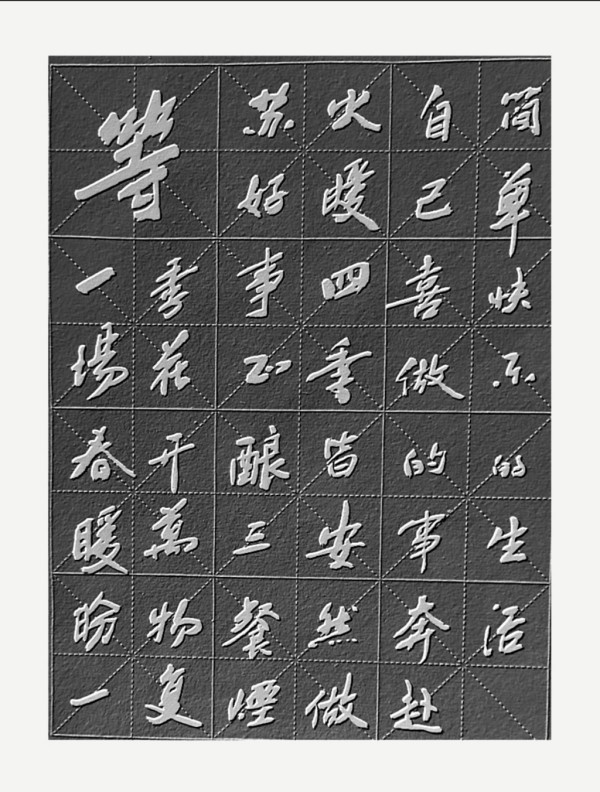 等
一場春暖盼一
季花开萬物复
苏好事正酿三餐煙
火暖四季皆安然做
自己喜做的事奔赴
简单快乐的生活